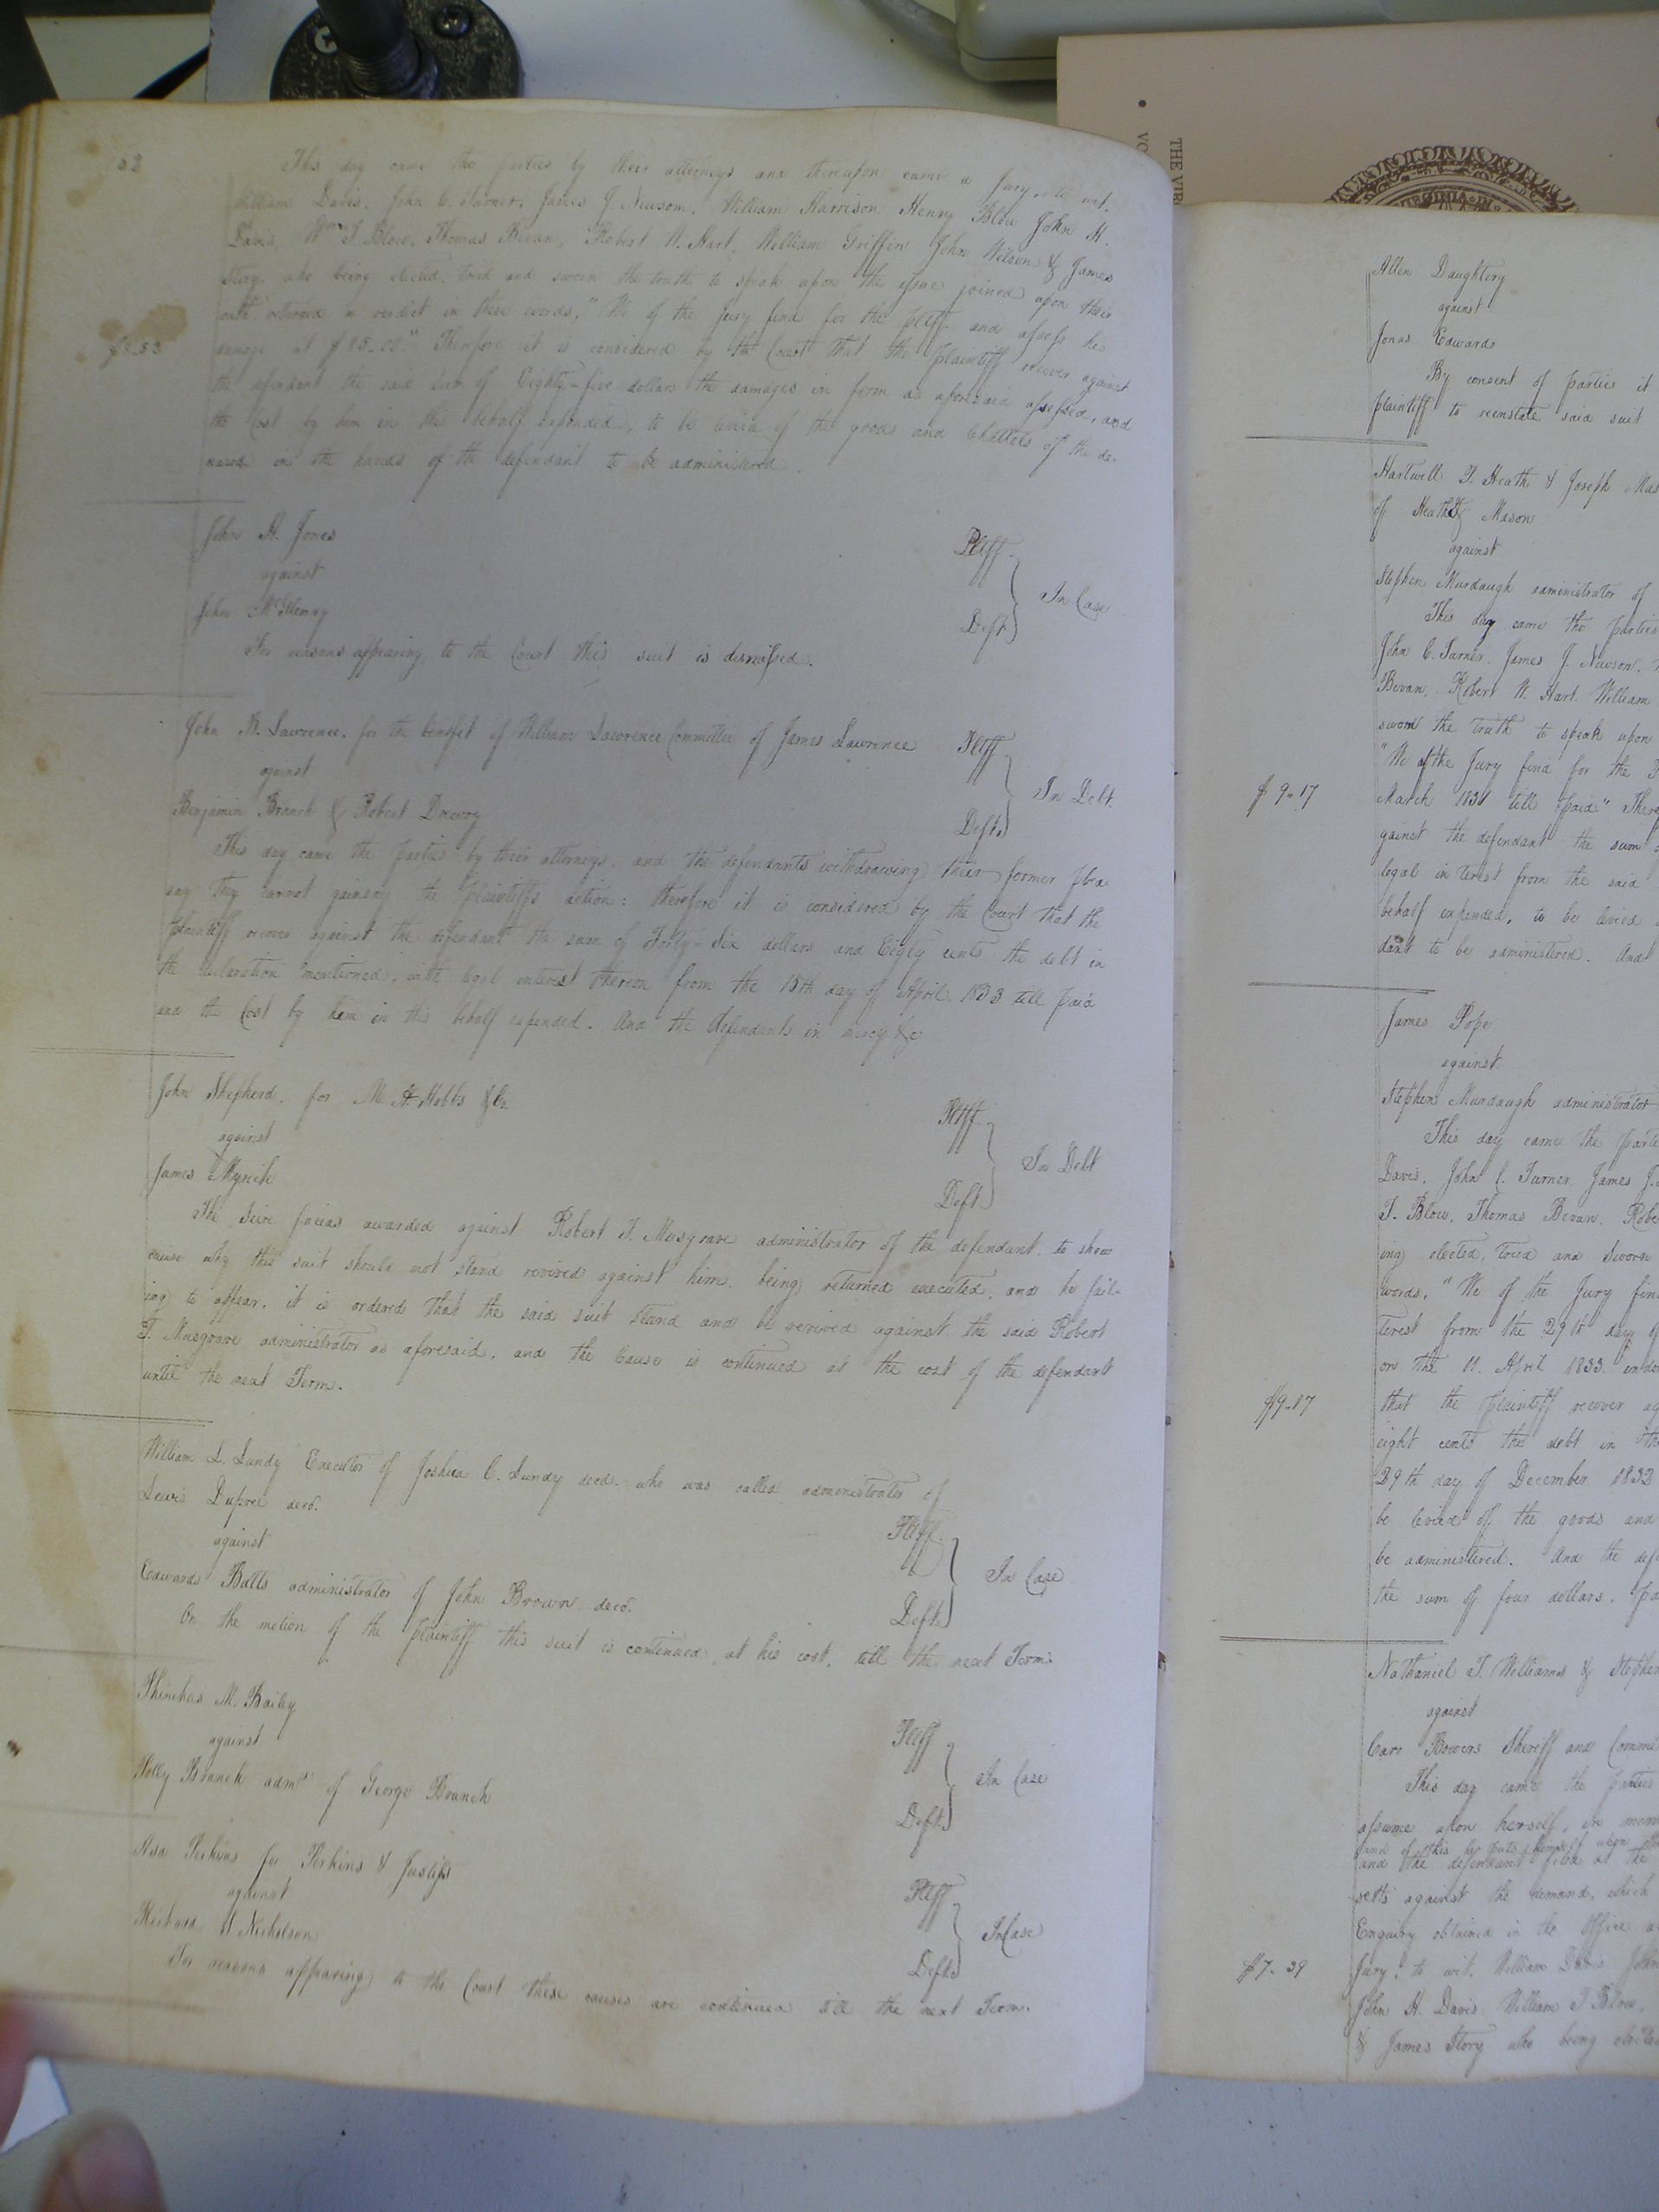 52
This day came the parties by their attorneys and thereupon came a Jury, to wit.
William Davis, John C. Turner, James J. Newsom, William Harrison Henry Blow John H.
Davis, Wm T. Blow, Thomas Bevan, Robert W. Hart, William Griffin John Wilson & James
Story, who being elected, tried and sworn the truth to speak upon the issue joined upon their
oath returned a verdict in these words, "We of the Jury find for the pltff. and assess his
damage at $85-00." Therefore it is considered by the Court that the plaintiff recover against
the defendant the said Sum of Eighty-five dollars the damages in form as aforesaid assessed, and
the Cost by him in this behalf expended, to be levied of the goods and Chattels of the de-
ceased in the hands of the defendant to be administered.
John H. Jones Pltff.
against In Case
John McHenry Deft
For reasons appearing to the Court this suit is dismissed.
John R. Lawrence, for the benefit of William Lawrence Committee of James Lawrence Pltff
against In Debt.
Benjamin Branch & Robert Drewry Defts
This day came the parties by their attorneys, and the defendants withdrawing their former plea
say they cannot gainsay the plaintiffs action: therefore it is considered by the Court that the
plaintiff recover against the defendant the sum of Forty-Six dollars and Eigty cents the debt in
the declaration mentioned, with legal interest thereon from the 15th day of April 1833 till paid
and the Cost by him in this behalf expended. And the defendants in mercy &c
John Shepherd, for M. H. Hobbs & Co. Pltff
against In Debt
James Myrick Deft
The Scire facias awarded against Robert T. Musgrave administrator of the defendant to show
cause why this suit should not stand revived against him, being returned executed, and he fail-
ing to appear, it is ordered that the said suit stand and be revived against the said Robert
T. Musgrave administrator as aforesaid, and the Cause is continued at the cost of the defendant
until the next Term.
William L. Lundy Executor of Joshua C. Lundy decd. who was called administrator of
Lewis Dupree decd. Pltff.
against In Case
Edwards Batts administrator of John Brown decd. Deft.
On the motion of the plaintiff this suit is continued, at his cost, till the next Term.
Phinehas M. Bailey Pltff
against In Case
Polly Branch admx of George Branch Deft.
Asa Perkins for Perkins & Justiss Pltff
against In Case
Richard Nicholson Deft.
For reasons appearing to the Court these causes are continued till the next Term.
THE VIR
VIRGINIA IN
Allen Daughtery
against
Jonas Edwards
By consent of parties it
plaintiff to reenstate said suit
Hartwell P. Heath & Joseph Mas
of Heath & Mason
against
Stephen Murdaugh administrator of
This day came the parties
John C. Turner, James J. Newsom,
Bevan, Robert W. Hart William
sworn the truth to speak upon
"We of the Jury find for the
$9-17 March 1831 till paid." There
gainst the defendant the sum
legal interest from the said
behalf expended, to be levied
dant to be administered. And
James Pope
against
Stephen Murdaugh administrator
This day came the parti
Davis, John C. Turner James J.
T. Blow, Thomas Bevan, Robe
ing elected, tried and sworn
words, "We of the Jury fin
terest from the 29th day of
on the 11. April 1833.
$9-17 that the plaintiff recover ag
eight cents the debt in the
29th day of December 1832
be levied of the goods and
be administered. And the def
the sum of four dollars, pa
Nathaniel T. Williams & Stephen
against
Carr Bowers Sheriff and Commi
This day came the parties
assume upon herself, in man
and of this he puts himself upon
and the defendant filed at the
setts against the demand, which
Enquiry obtained in the Office
$7-39 Jury, to wit, William Davis John
John H. Davis, William T Blow,
& James Story who being elected